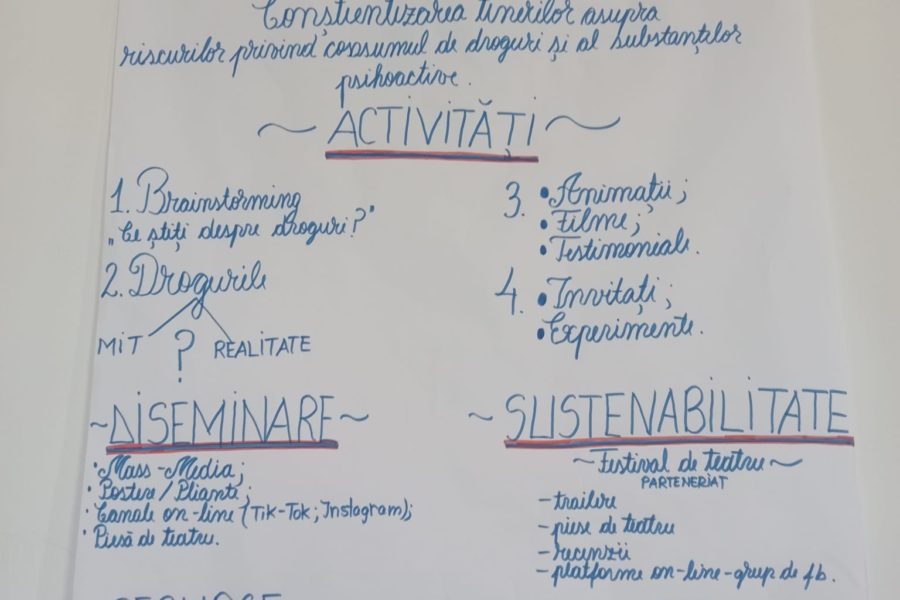 Conștientizarea tinerilor asupra
riscurilor privind consumul de droguri și al substanțelor
psihoactive.
~ ACTIVITĂȚI ~
1. Brainstorming
„Ce știți despre droguri?"
2. Drogurile
MIT ? REALITATE
3. • Animații;
• Filme;
• Testimoniale.
4. • Invitați;
• Experimente.
~ DISEMINARE ~
• Mass-Media;
• Postere / Pliante;
• Canale on-line (Tik-Tok; Instagram);
• Piesă de teatru.
~ SUSTENABILITATE
~ Festival de teatru ~
PARTENERIAT
- trailere
- piese de teatru
- recenzii
- platforme on-line-grup de fb.